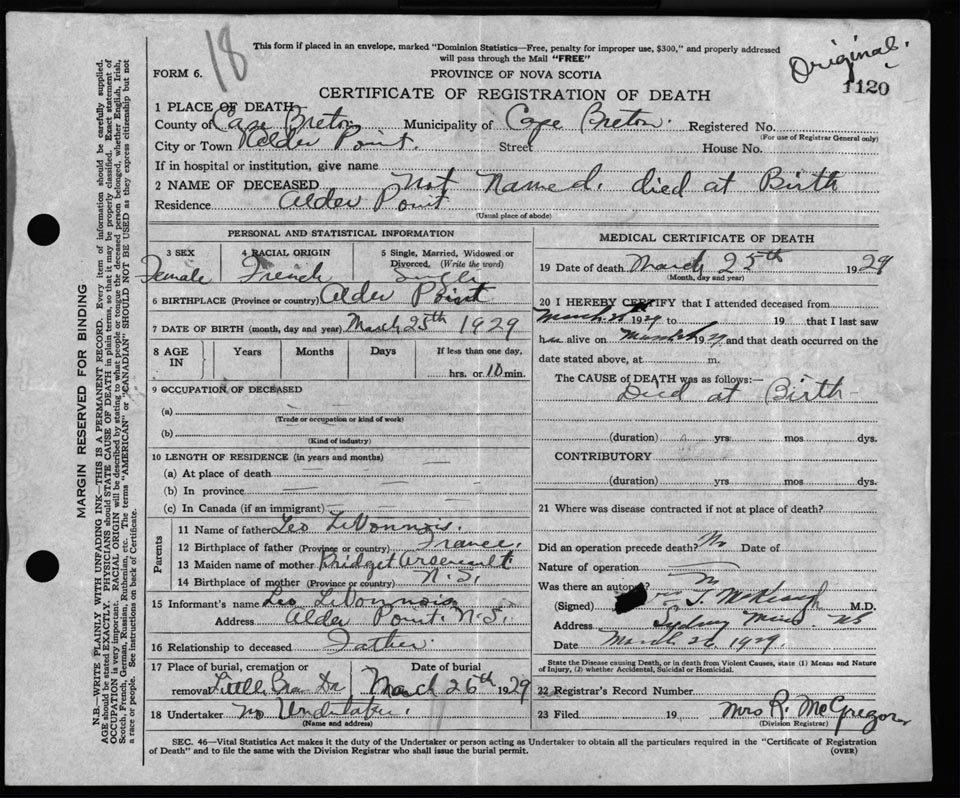 18
This form if placed in an envelope, marked "Dominion Statistics—Free, penalty for improper use, $300," and properly addressed
will pass through the Mail "FREE"
Original.
1120
FORM 6.
PROVINCE OF NOVA SCOTIA
CERTIFICATE OF REGISTRATION OF DEATH
1 PLACE OF DEATH
County of Cape Breton Municipality of Cape Breton. Registered No.
(For use of Registrar General only)
City or Town Alder Point. Street House No.
If in hospital or institution, give name
2 NAME OF DECEASED Not Named. died at Birth
Residence Alder Point
(Usual place of abode)
PERSONAL AND STATISTICAL INFORMATION
3 SEX Female
4 RACIAL ORIGIN French
5 Single, Married, Widowed or Divorced. (Write the word) Single
6 BIRTHPLACE (Province or country) Alder Point
7 DATE OF BIRTH (month, day and year) March 25th 1929
8 AGE IN Years Months Days If less than one day,
hrs. or 10 min.
9 OCCUPATION OF DECEASED
(a)
(Trade or occupation or kind of work)
(b)
(Kind of industry)
10 LENGTH OF RESIDENCE (in years and months)
(a) At place of death
(b) In province
(c) In Canada (if an immigrant)
Parents
11 Name of father Leo LeVonnois.
12 Birthplace of father (Province or country) France.
13 Maiden name of mother Bridget Arsenault
14 Birthplace of mother (Province or country) N.S.
15 Informant's name Leo LeVonnois
Address Alder Point. N.S.
16 Relationship to deceased Father
17 Place of burial, cremation or Date of burial
removal Little Bras Dr March 26th 1929
18 Undertaker No Undertaker.
(Name and address)
MEDICAL CERTIFICATE OF DEATH
19 Date of death March 25th 1929
(Month, day and year)
20 I HEREBY CERTIFY that I attended deceased from
March 1929 to 19 that I last saw
h alive on 19 and that death occurred on the
date stated above, at m.
The CAUSE of DEATH was as follows:—
Died at Birth
(duration) yrs mos dys.
CONTRIBUTORY
(duration) yrs mos dys.
21 Where was disease contracted if not at place of death?
Did an operation precede death? No Date of
Nature of operation
Was there an autopsy? No
(Signed) T. McKeough M.D.
Address Sydney Mines NS
Date March 26. 1929.
State the Disease causing Death, or in death from Violent Causes, state (1) Means and Nature
of Injury, (2) whether Accidental, Suicidal or Homicidal.
22 Registrar's Record Number
23 Filed 19 Mrs R. McGregor
(Division Registrar)
SEC. 46—Vital Statistics Act makes it the duty of the Undertaker or person acting as Undertaker to obtain all the particulars required in the "Certificate of Registration
of Death" and to file the same with the Division Registrar who shall issue the burial permit.
(OVER)
MARGIN RESERVED FOR BINDING
N.B.—WRITE PLAINLY WITH UNFADING INK—THIS IS A PERMANENT RECORD. Every item of information should be carefully supplied.
AGE should be stated EXACTLY. PHYSICIANS should STATE CAUSE OF DEATH in plain terms, so that it may be properly classified. Exact statement of
OCCUPATION is very important. RACIAL ORIGIN will be described by stating to what people or tongue the deceased person belonged, whether English, Irish,
Scotch, French, German, Russian, Ruthenian, etc. The terms "AMERICAN" or "CANADIAN" SHOULD NOT BE USED as they express citizenship but not
a race or people. See instructions on back of Certificate.